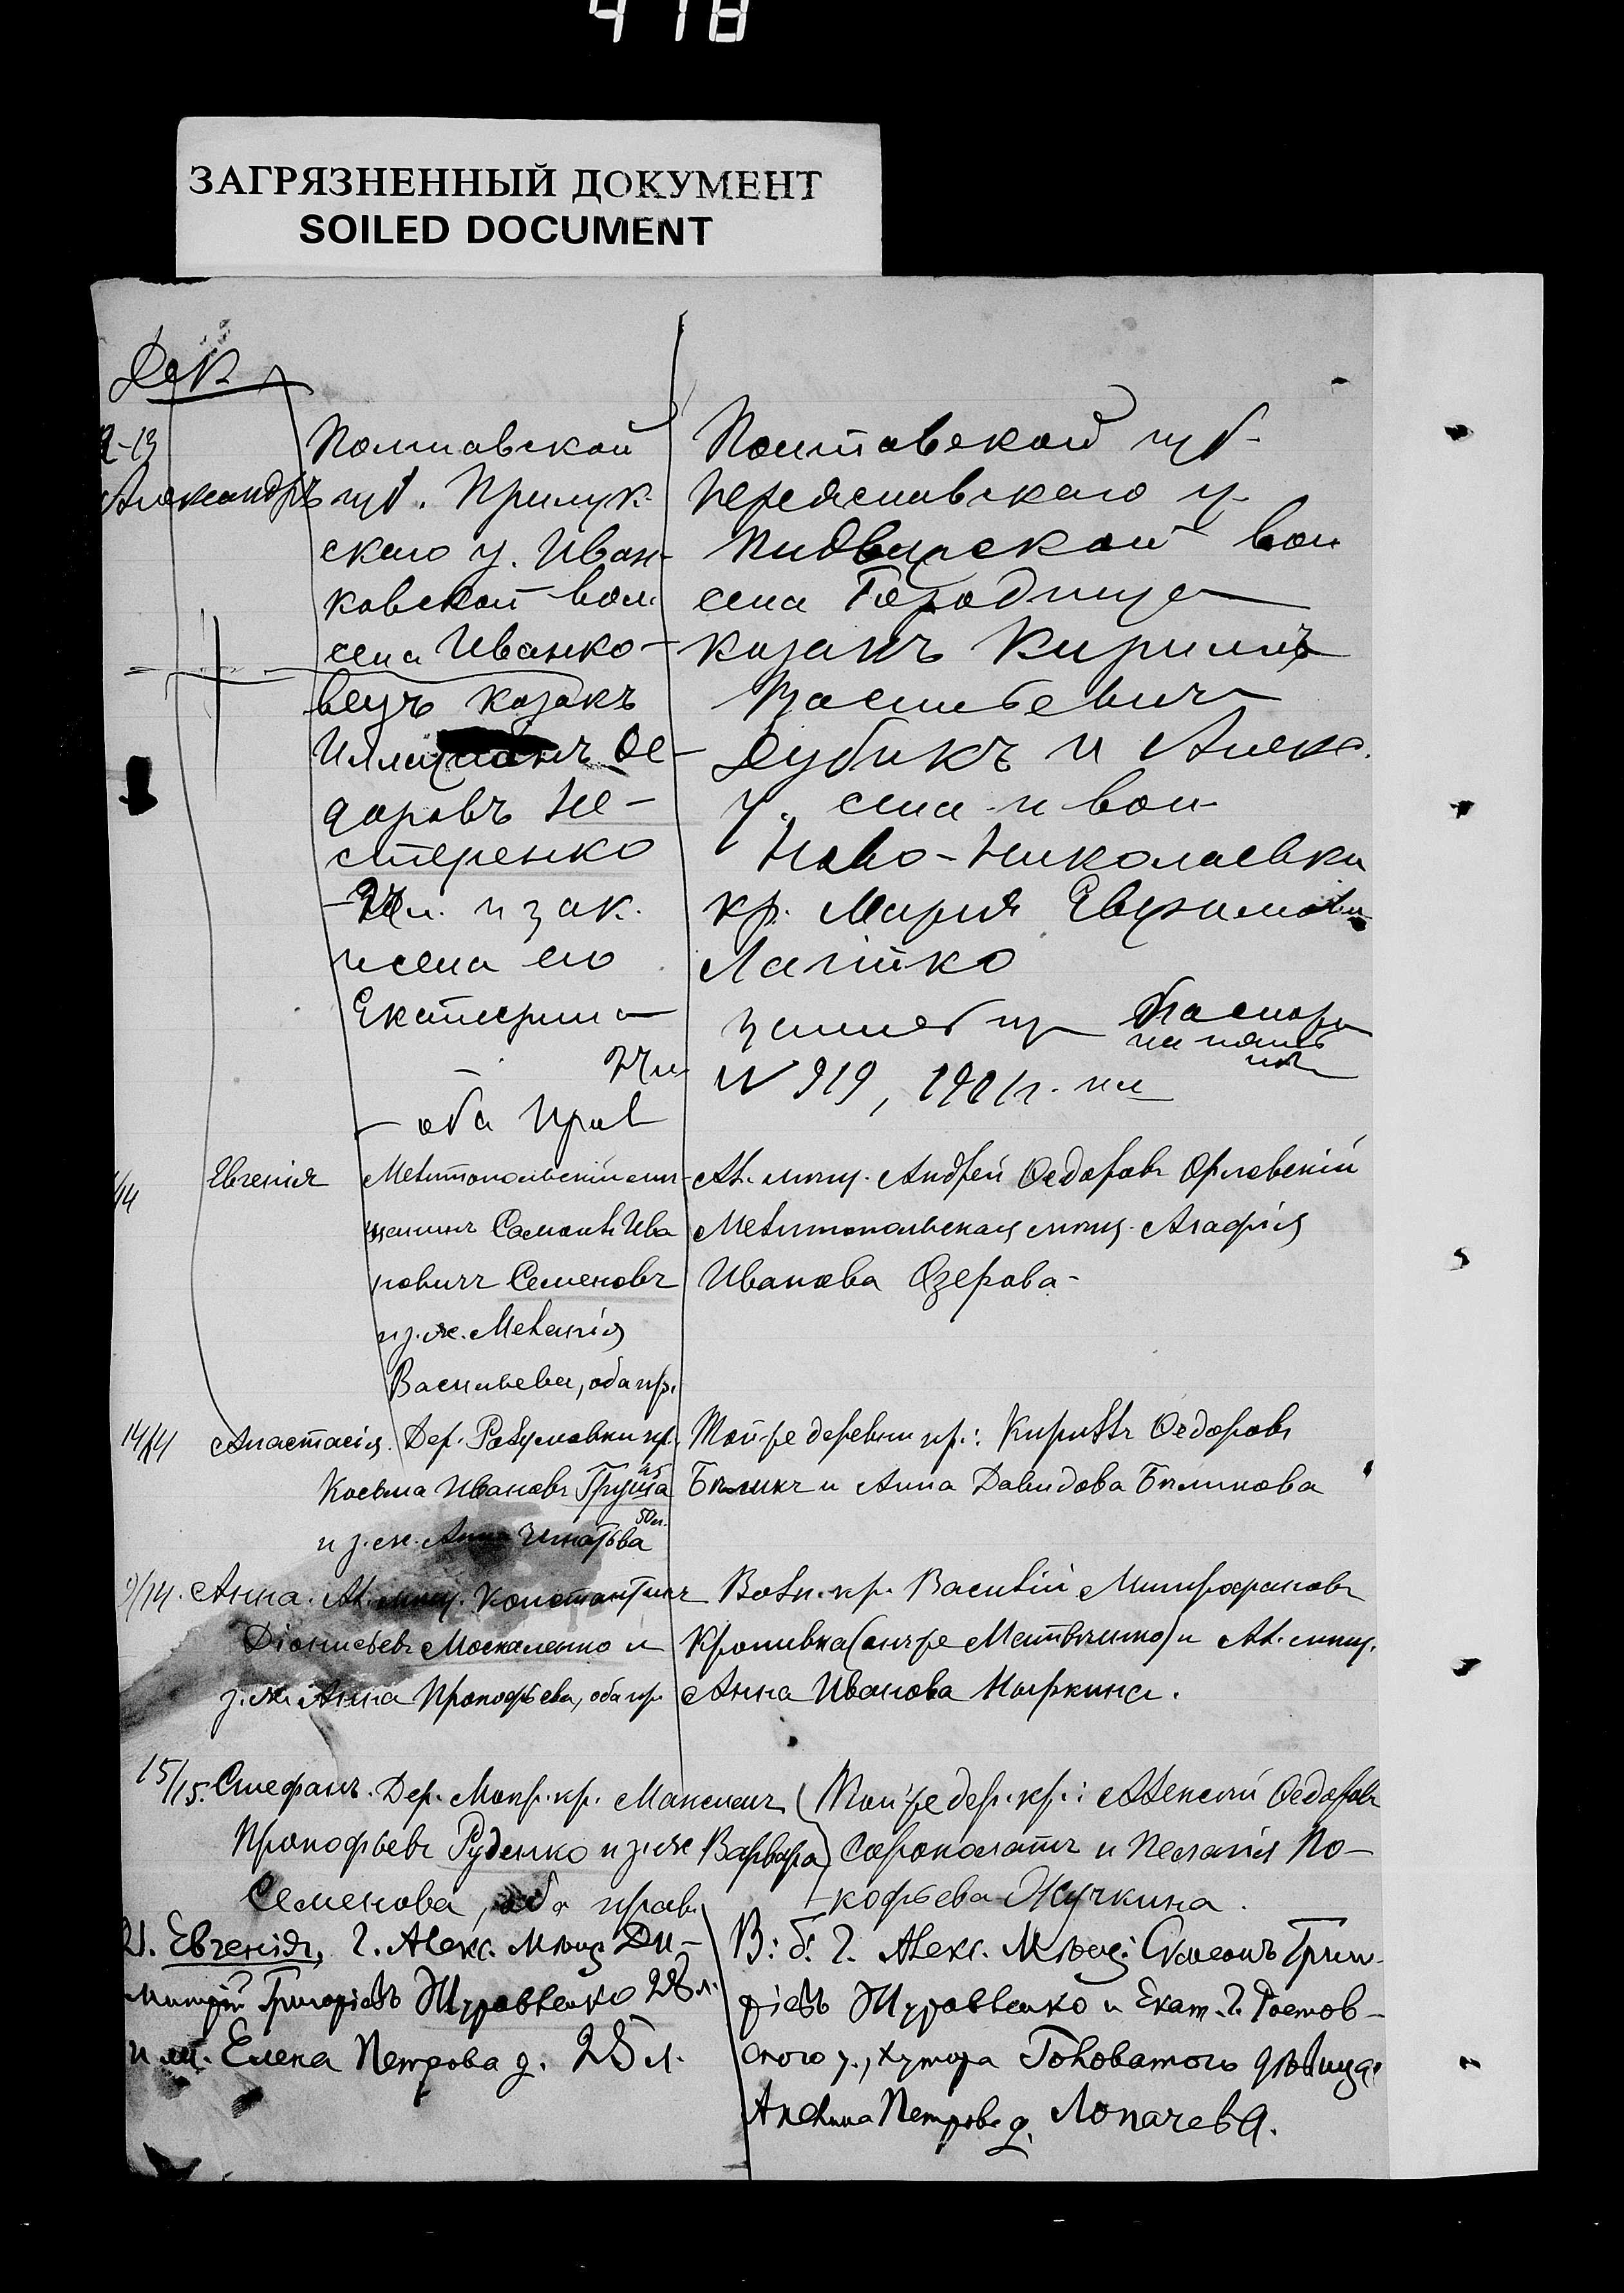 418
ЗАГРЯЗНЕННЫЙ ДОКУМЕНТ
SOILED DOCUMENT
Дек
2-13
Александръ
Полтавской
губ. Прилук-
скаго у. Иван-
ковской вол.
села Иванко-
вецъ козакъ
Ѳе-
доровъ Не-
стеренко
и зак.
жена его
Екатерина
27 л
оба прав
Полтавской губ
Переяславскаго у.
вол
села Городище
козакъ Кириллъ
Васильевич
Дубикъ и Алекс.
у., села и вол
Ново-Николаевки
кр. Марія Евфимова
Лагійко
Паспорт
N 919, 1901 г.
/14 Евгенія
Мелитопольскій мѣ-
щанинъ Самоилъ Ива
новичъ Семеновъ
и з. ж. Меланія
Васильева, оба пр.
Ал. мѣщ. Андрей Ѳедоровъ Орловскій
Мелитопольская мѣщ. Агафія
Иванова Озерова-
14/14 Анастасія. Дер. Разумовки кр.
Косьма Ивановъ Груша 45
и з. ж. Анна Игнатьва 50 л.
Той же деревни кр.: Кириллъ Ѳедоровъ
Бѣликъ и Анна Давидова Бѣликова
/14. Анна. Ал. мѣщ. Константинъ
Діонисьевъ Москаленко и
з. ж. Анна Прокофьева, оба пр.
Вольн. кр. Василій Митрофановъ
Кропивка (онъ же Матвѣенко) и Ал. мѣщ.
Анна Иванова Ныркина.
15/15. Стефанъ. Дер. Мокр. кр. Максимъ
Прокофьевъ Руденко и з. ж. Варвара
Семенова, оба прав.
Той же дер. кр.: Алексѣй Ѳедоровъ
Сорокопатъ и Пелагія По-
кофьева Жучкина.
21. Евгенія, г. Алекс. мѣщ Ди-
митрій Григоріевъ Журавленко 28 л.
и ж. Елена Петрова д. 25 л.
В: б: г. Алекс. Мѣщ: Симеонъ Григо-
ріевъ Журавленко и Екат. г. Ростов-
скаго у., хутора Головатого дѣвица
Акелина Петрова д. Лопачева.